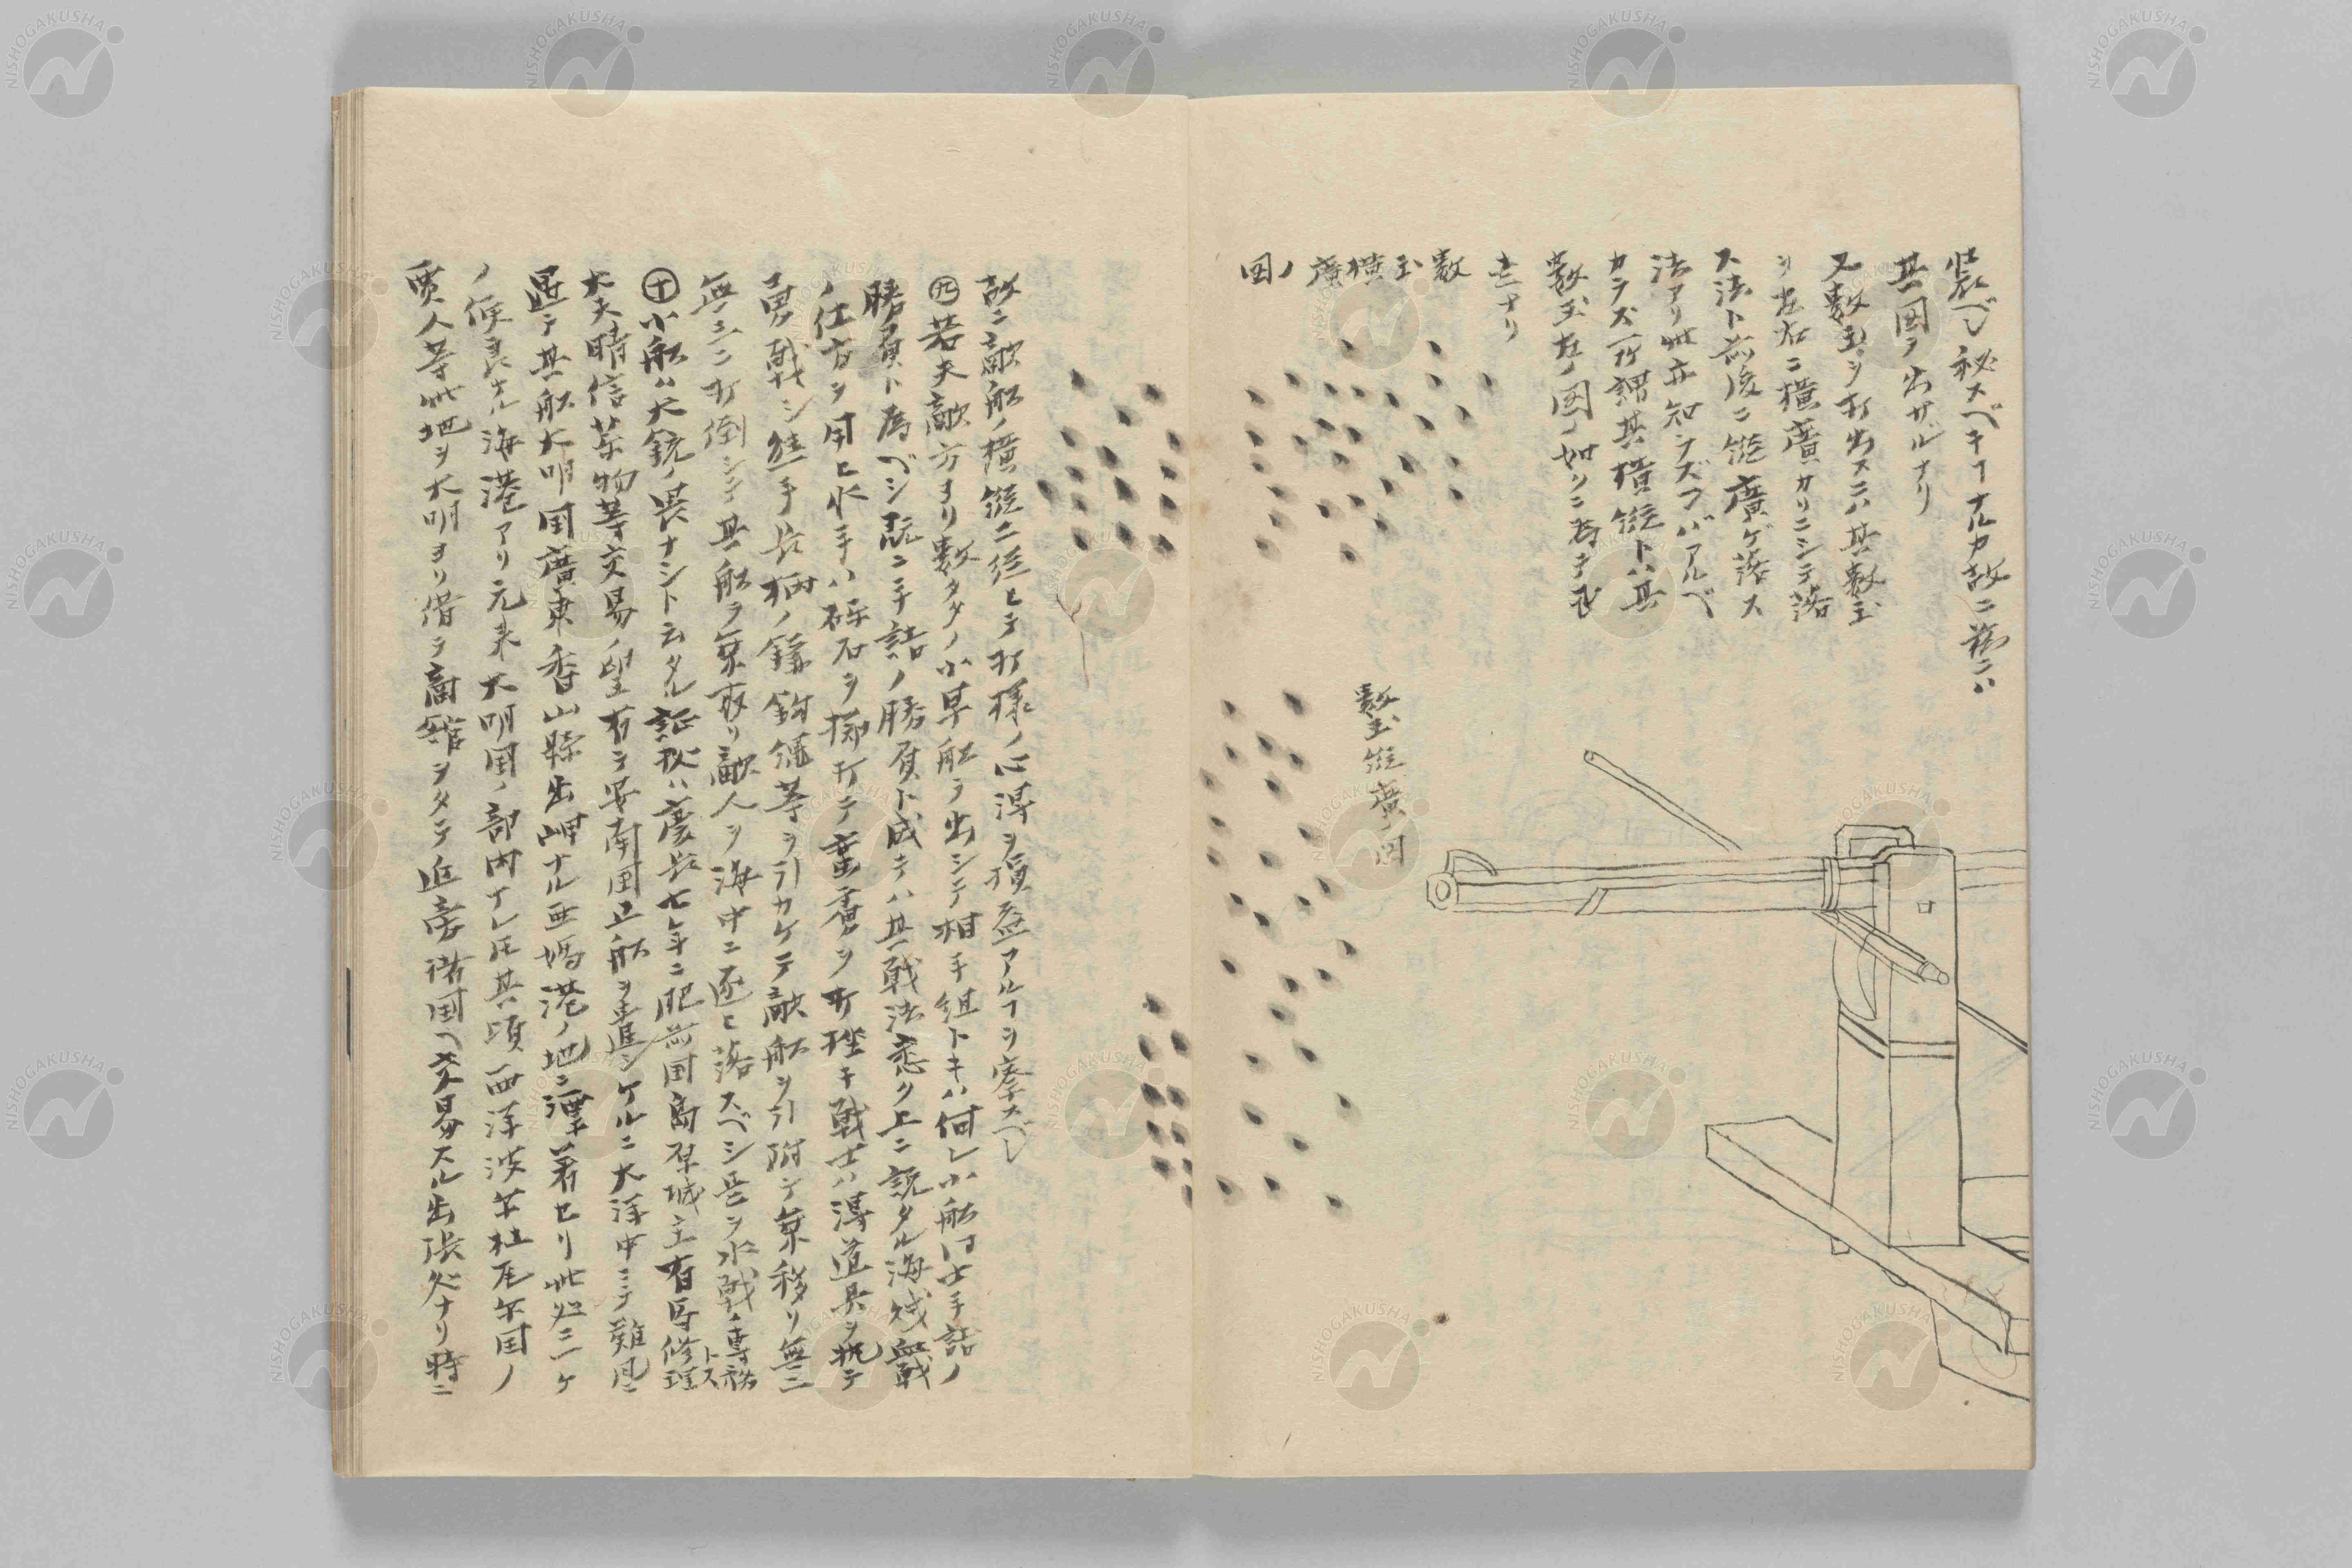 装ベシ秘スベキヿナルカ故ニ茲ニハ
其図ヲ出サザルナリ
又数玉ヲ打出スニハ其数玉
ヲ左右ニ横廣カリニシテ落
ス法ト前後ニ縦廣ゲ落ス
法アリ此亦知ラズンバアルベ
カラズ所謂其横縦トハ其
数玉左ノ図ノ如クニ為テ飛
セナリ
数玉横廣ノ図
数玉縦廣ノ図
故ニ敵船ノ横縦ニ従ヒテ打様ノ心得ヲ損益アルヿヲ察スベシ
㊈若夫敵方ヨリ数タタノ小早船ヲ出シテ相手組トキハ何レ小船同士手詰ノ
勝負ト為ベシ既ニ手詰ノ勝負ト成テハ其戦法悉ク上ニ説タル海賊戦
ノ仕方ヲ用ヒ水手ハ砕石ヲ擲打テ童磨ヲ打挫キ戦士ハ得道具ヲ執テ
勇戦シ熊手長柄ノ鎌鈎縄等ヲ引カケテ敵船ヲ引附テ乗移リ無二
無三ニ打倒シテ其船ヲ乗取リ敵人ヲ海中ニ逐ヒ落スベシ是ヲ水戦ノ専務
トス
㊉小船ハ大銃ノ畏ナシト云タル証拠ハ慶長七年ニ肥前国島原城主有馬修理
大夫晴信茶物等交易ノ望有テ安南国エ船ヲ進シケルニ大洋中ニテ難風ニ
逅テ其船大明国廣東香山縣出岬ナル亜媽港ノ地ニ漂着セリ此処ニ一ケ
ノ候良ナル海港アリ元来大明国ノ部内ナレ𪜈其頃西洋波牟杜瓦尓国ノ
賈人等此地ヲ大明ヨリ借テ商館ヲタテ近旁諸国ヘ交易スル出張処ナリ時ニ
NISHOGAKUSHA